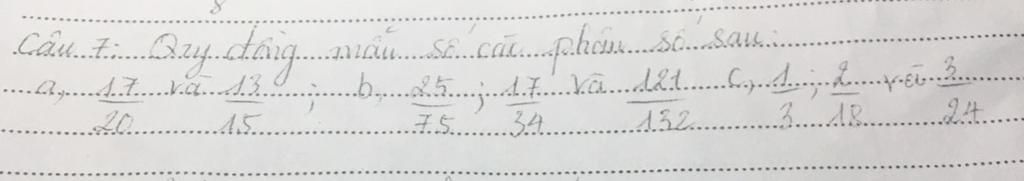 8
Câu 7: Quy đồng mẫu số các phân số sau:
a, 17/20 và 13/15 ; b, 25/75 ; 17/34 và 121/132 c, 1/3 ; 2/18 và 3/24